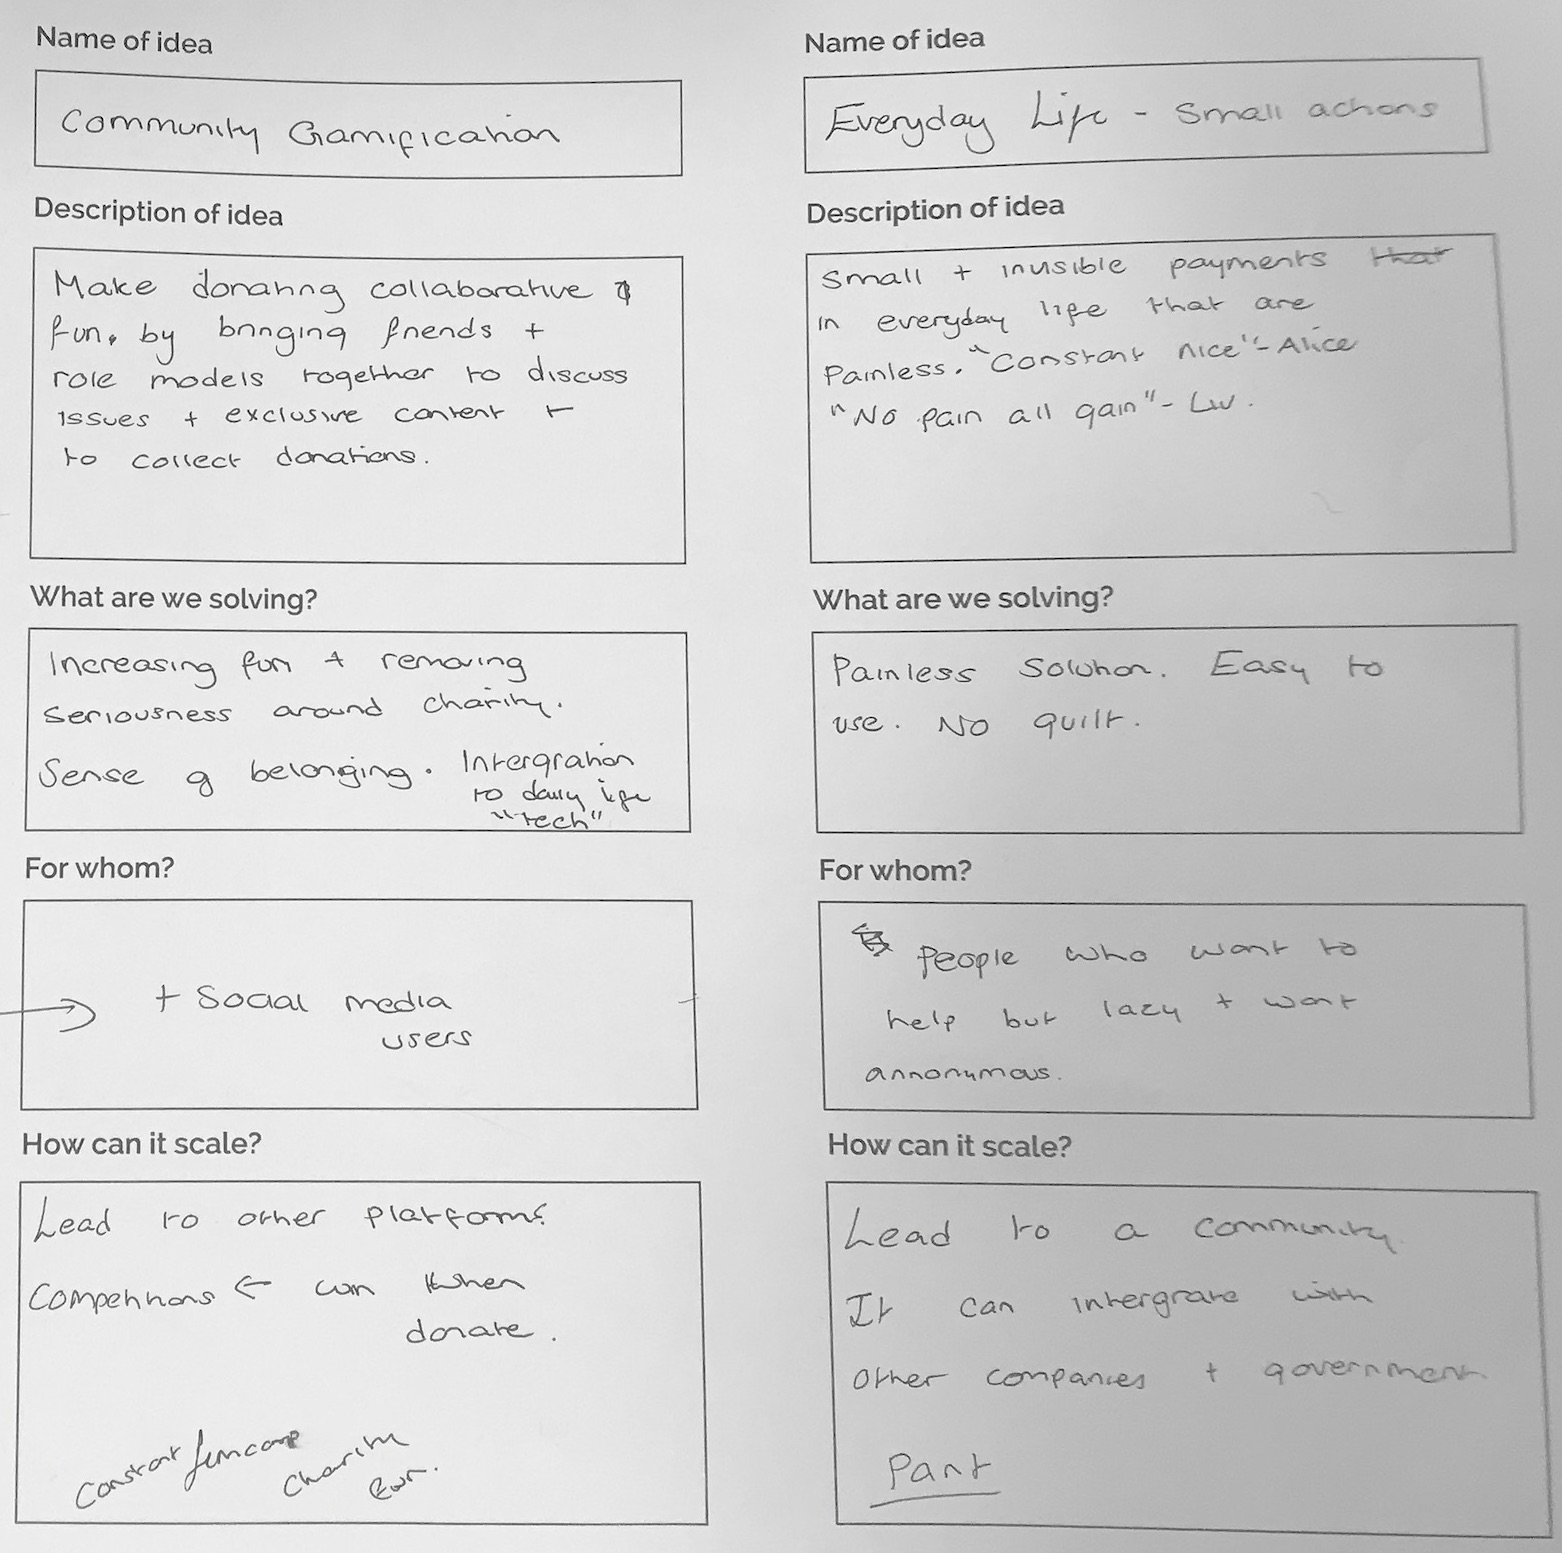 Name of idea
Community Gamification
Description of idea
Make donating collaborative &
fun, by bringing friends +
role models together to discuss
issues + exclusive content +
to collect donations.
What are we solving?
Increasing fun + removing
seriousness around charity.
Sense of belonging. Intergration
to daily life
"tech"
For whom?
+ Social media
users
How can it scale?
Lead to other platforms
Competitions ← win when
donate.
Constant
Charity
Name of idea
Everyday Life - Small actions
Description of idea
Small + invisible payments that
in everyday life that are
Painless. "Constant nice" - Alice
"No pain all gain" - Liv.
What are we solving?
Painless solution. Easy to
use. No guilt.
For whom?
People who want to
help but lazy + want
annonymous.
How can it scale?
Lead to a community.
It can intergrate with
other companies + government
Pant